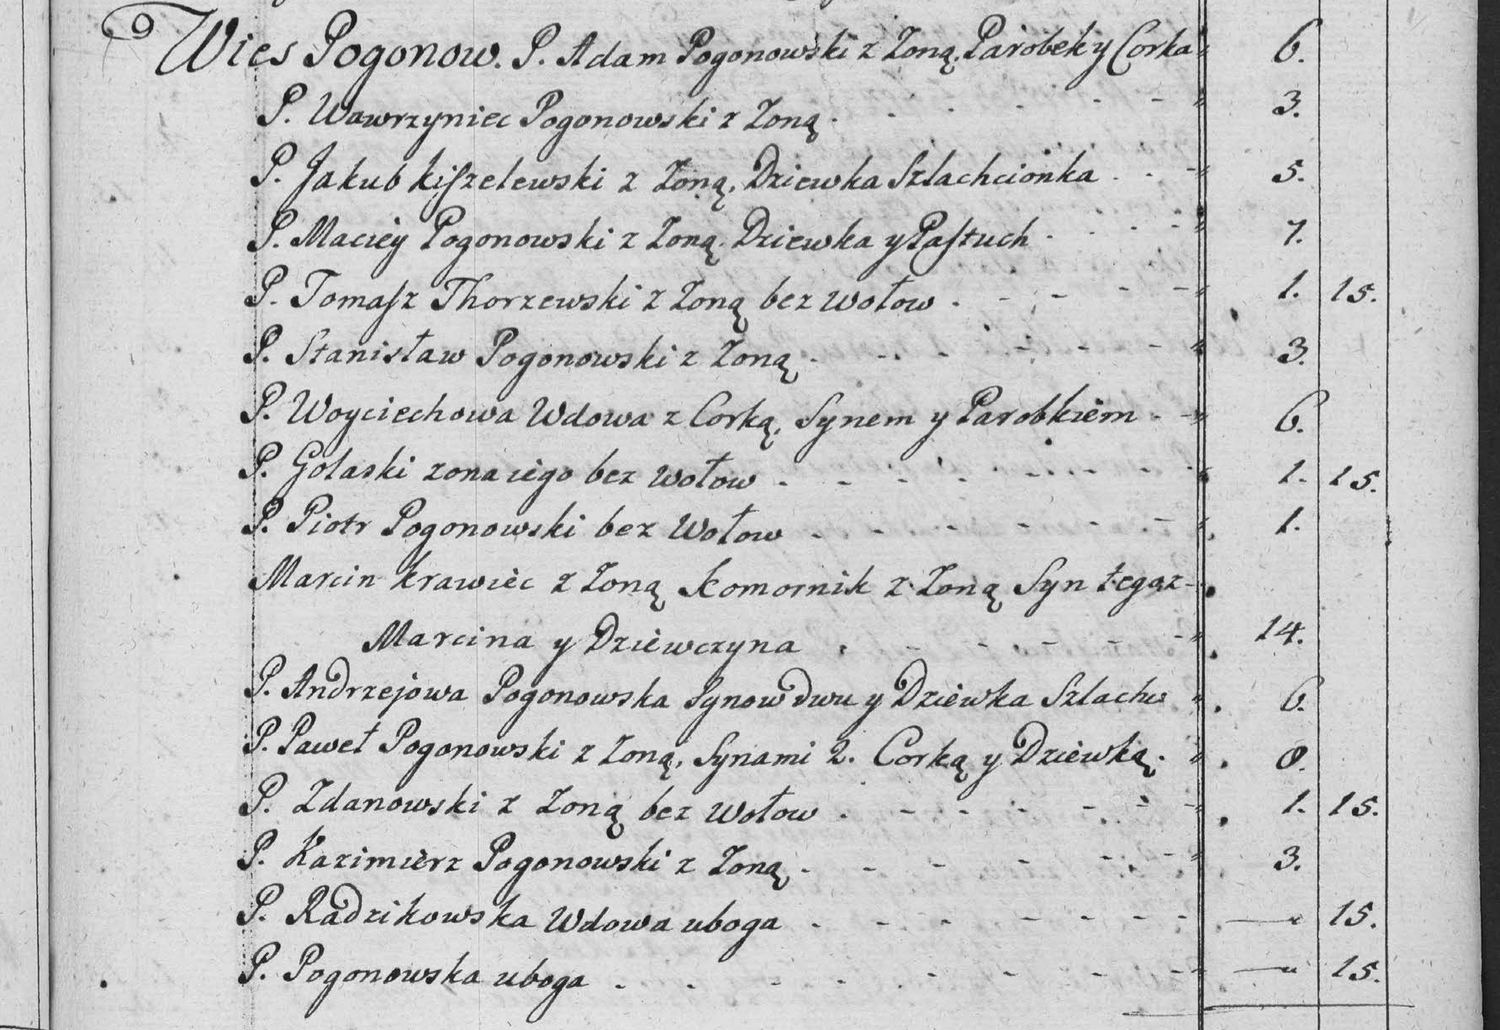 Wies Pogonow. P. Adam Pogonowski z Zoną. Parobek y Corka 6.
P. Wawrzyniec Pogonowski z Zoną. 3.
P. Jakub Kiſzelewski z Zoną, Dziewka Szlachcionka 5.
P. Maciey Pogonowski z Zoną. Dziewka y Paſtuch 7.
P. Tomaſz Thorzewski z Zoną bez Wołow. 1. 15.
P. Stanisław Pogonowski z Zoną. 3.
P. Woyciechowa Wdowa z Corką, Synem y Parobkiem 6.
P. Golaski zona iego bez Wołow 1. 15.
P. Piotr Pogonowski bez Wołow 1.
Marcin Krawiec z Zoną Komornik z Zoną Syn tegoz
Marcina y Dziewczyna 14.
P. Andrzejowa Pogonowska Synow dwu y Dziewka Szlach: 6.
P. Paweł Pogonowski z Zoną, Synami 2. Corką y Dziewką. 8.
P. Zdanowski z Zoną bez Wołow 1. 15.
P. Kazimierz Pogonowski z Zoną. 3.
P. Radzikowska Wdowa uboga — 15.
P. Pogonowska uboga — 15.